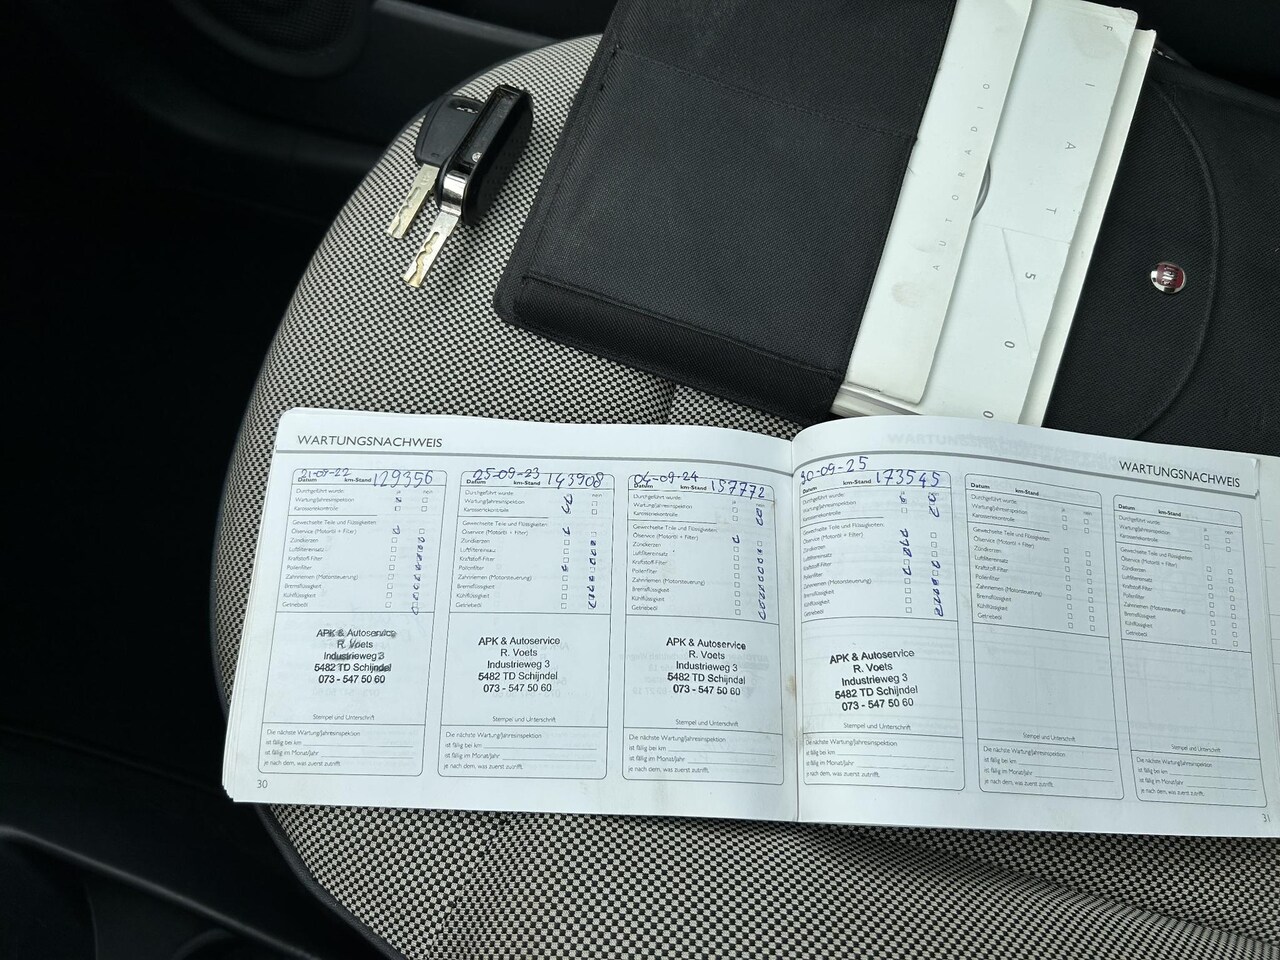 AUTORADIO
FIAT 500
FIAT
WARTUNGSNACHWEIS
21-07-22 129356
Datum km-Stand
Durchgeführt wurde: ja nein
Wartung/Jahresinspektion
Karosseriekontrolle
Gewechselte Teile und Flüssigkeiten:
Ölservice (Motoröl + Filter)
Zündkerzen
Luftfiltereinsatz
Kraftstoff-Filter
Pollenfilter
Zahnriemen (Motorsteuerung)
Bremsflüssigkeit
Kühlflüssigkeit
Getriebeöl
APK & Autoservice
R. Voets
Industrieweg 3
5482 TD Schijndel
073 - 547 50 60
Stempel und Unterschrift
Die nächste Wartung/Jahresinspektion
ist fällig bei km
ist fällig im Monat/Jahr
je nach dem, was zuerst zutrifft.
30
05-09-23 143908
Datum km-Stand
Durchgeführt wurde: ja nein
Wartung/Jahresinspektion
Karosseriekontrolle
Gewechselte Teile und Flüssigkeiten:
Ölservice (Motoröl + Filter)
Zündkerzen
Luftfiltereinsatz
Kraftstoff-Filter
Pollenfilter
Zahnriemen (Motorsteuerung)
Bremsflüssigkeit
Kühlflüssigkeit
Getriebeöl
APK & Autoservice
R. Voets
Industrieweg 3
5482 TD Schijndel
073 - 547 50 60
Stempel und Unterschrift
Die nächste Wartung/Jahresinspektion
ist fällig bei km
ist fällig im Monat/Jahr
je nach dem, was zuerst zutrifft.
04-09-24 157772
Datum km-Stand
Durchgeführt wurde: ja nein
Wartung/Jahresinspektion
Karosseriekontrolle
Gewechselte Teile und Flüssigkeiten:
Ölservice (Motoröl + Filter)
Zündkerzen
Luftfiltereinsatz
Kraftstoff-Filter
Pollenfilter
Zahnriemen (Motorsteuerung)
Bremsflüssigkeit
Kühlflüssigkeit
Getriebeöl
APK & Autoservice
R. Voets
Industrieweg 3
5482 TD Schijndel
073 - 547 50 60
Stempel und Unterschrift
Die nächste Wartung/Jahresinspektion
ist fällig bei km
ist fällig im Monat/Jahr
je nach dem, was zuerst zutrifft.
WARTUNGSNACHWEIS
30-09-25 173545
Datum km-Stand
Durchgeführt wurde: ja nein
Wartung/Jahresinspektion
Karosseriekontrolle
Gewechselte Teile und Flüssigkeiten:
Ölservice (Motoröl + Filter)
Zündkerzen
Luftfiltereinsatz
Kraftstoff-Filter
Pollenfilter
Zahnriemen (Motorsteuerung)
Bremsflüssigkeit
Kühlflüssigkeit
Getriebeöl
APK & Autoservice
R. Voets
Industrieweg 3
5482 TD Schijndel
073 - 547 50 60
Stempel und Unterschrift
Die nächste Wartung/Jahresinspektion
ist fällig bei km
ist fällig im Monat/Jahr
je nach dem, was zuerst zutrifft.
Datum km-Stand
Durchgeführt wurde: ja nein
Wartung/Jahresinspektion
Karosseriekontrolle
Gewechselte Teile und Flüssigkeiten:
Ölservice (Motoröl + Filter)
Zündkerzen
Luftfiltereinsatz
Kraftstoff-Filter
Pollenfilter
Zahnriemen (Motorsteuerung)
Bremsflüssigkeit
Kühlflüssigkeit
Getriebeöl
Stempel und Unterschrift
Die nächste Wartung/Jahresinspektion
ist fällig bei km
ist fällig im Monat/Jahr
je nach dem, was zuerst zutrifft.
Datum km-Stand
Durchgeführt wurde: ja nein
Wartung/Jahresinspektion
Karosseriekontrolle
Gewechselte Teile und Flüssigkeiten:
Ölservice (Motoröl + Filter)
Zündkerzen
Luftfiltereinsatz
Kraftstoff-Filter
Pollenfilter
Zahnriemen (Motorsteuerung)
Bremsflüssigkeit
Kühlflüssigkeit
Getriebeöl
Stempel und Unterschrift
Die nächste Wartung/Jahresinspektion
ist fällig bei km
ist fällig im Monat/Jahr
je nach dem, was zuerst zutrifft.
31